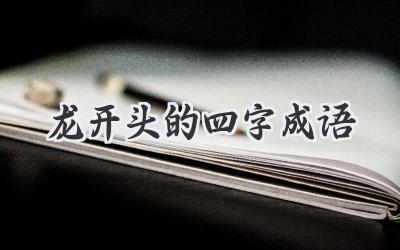 龙开头的四字成语